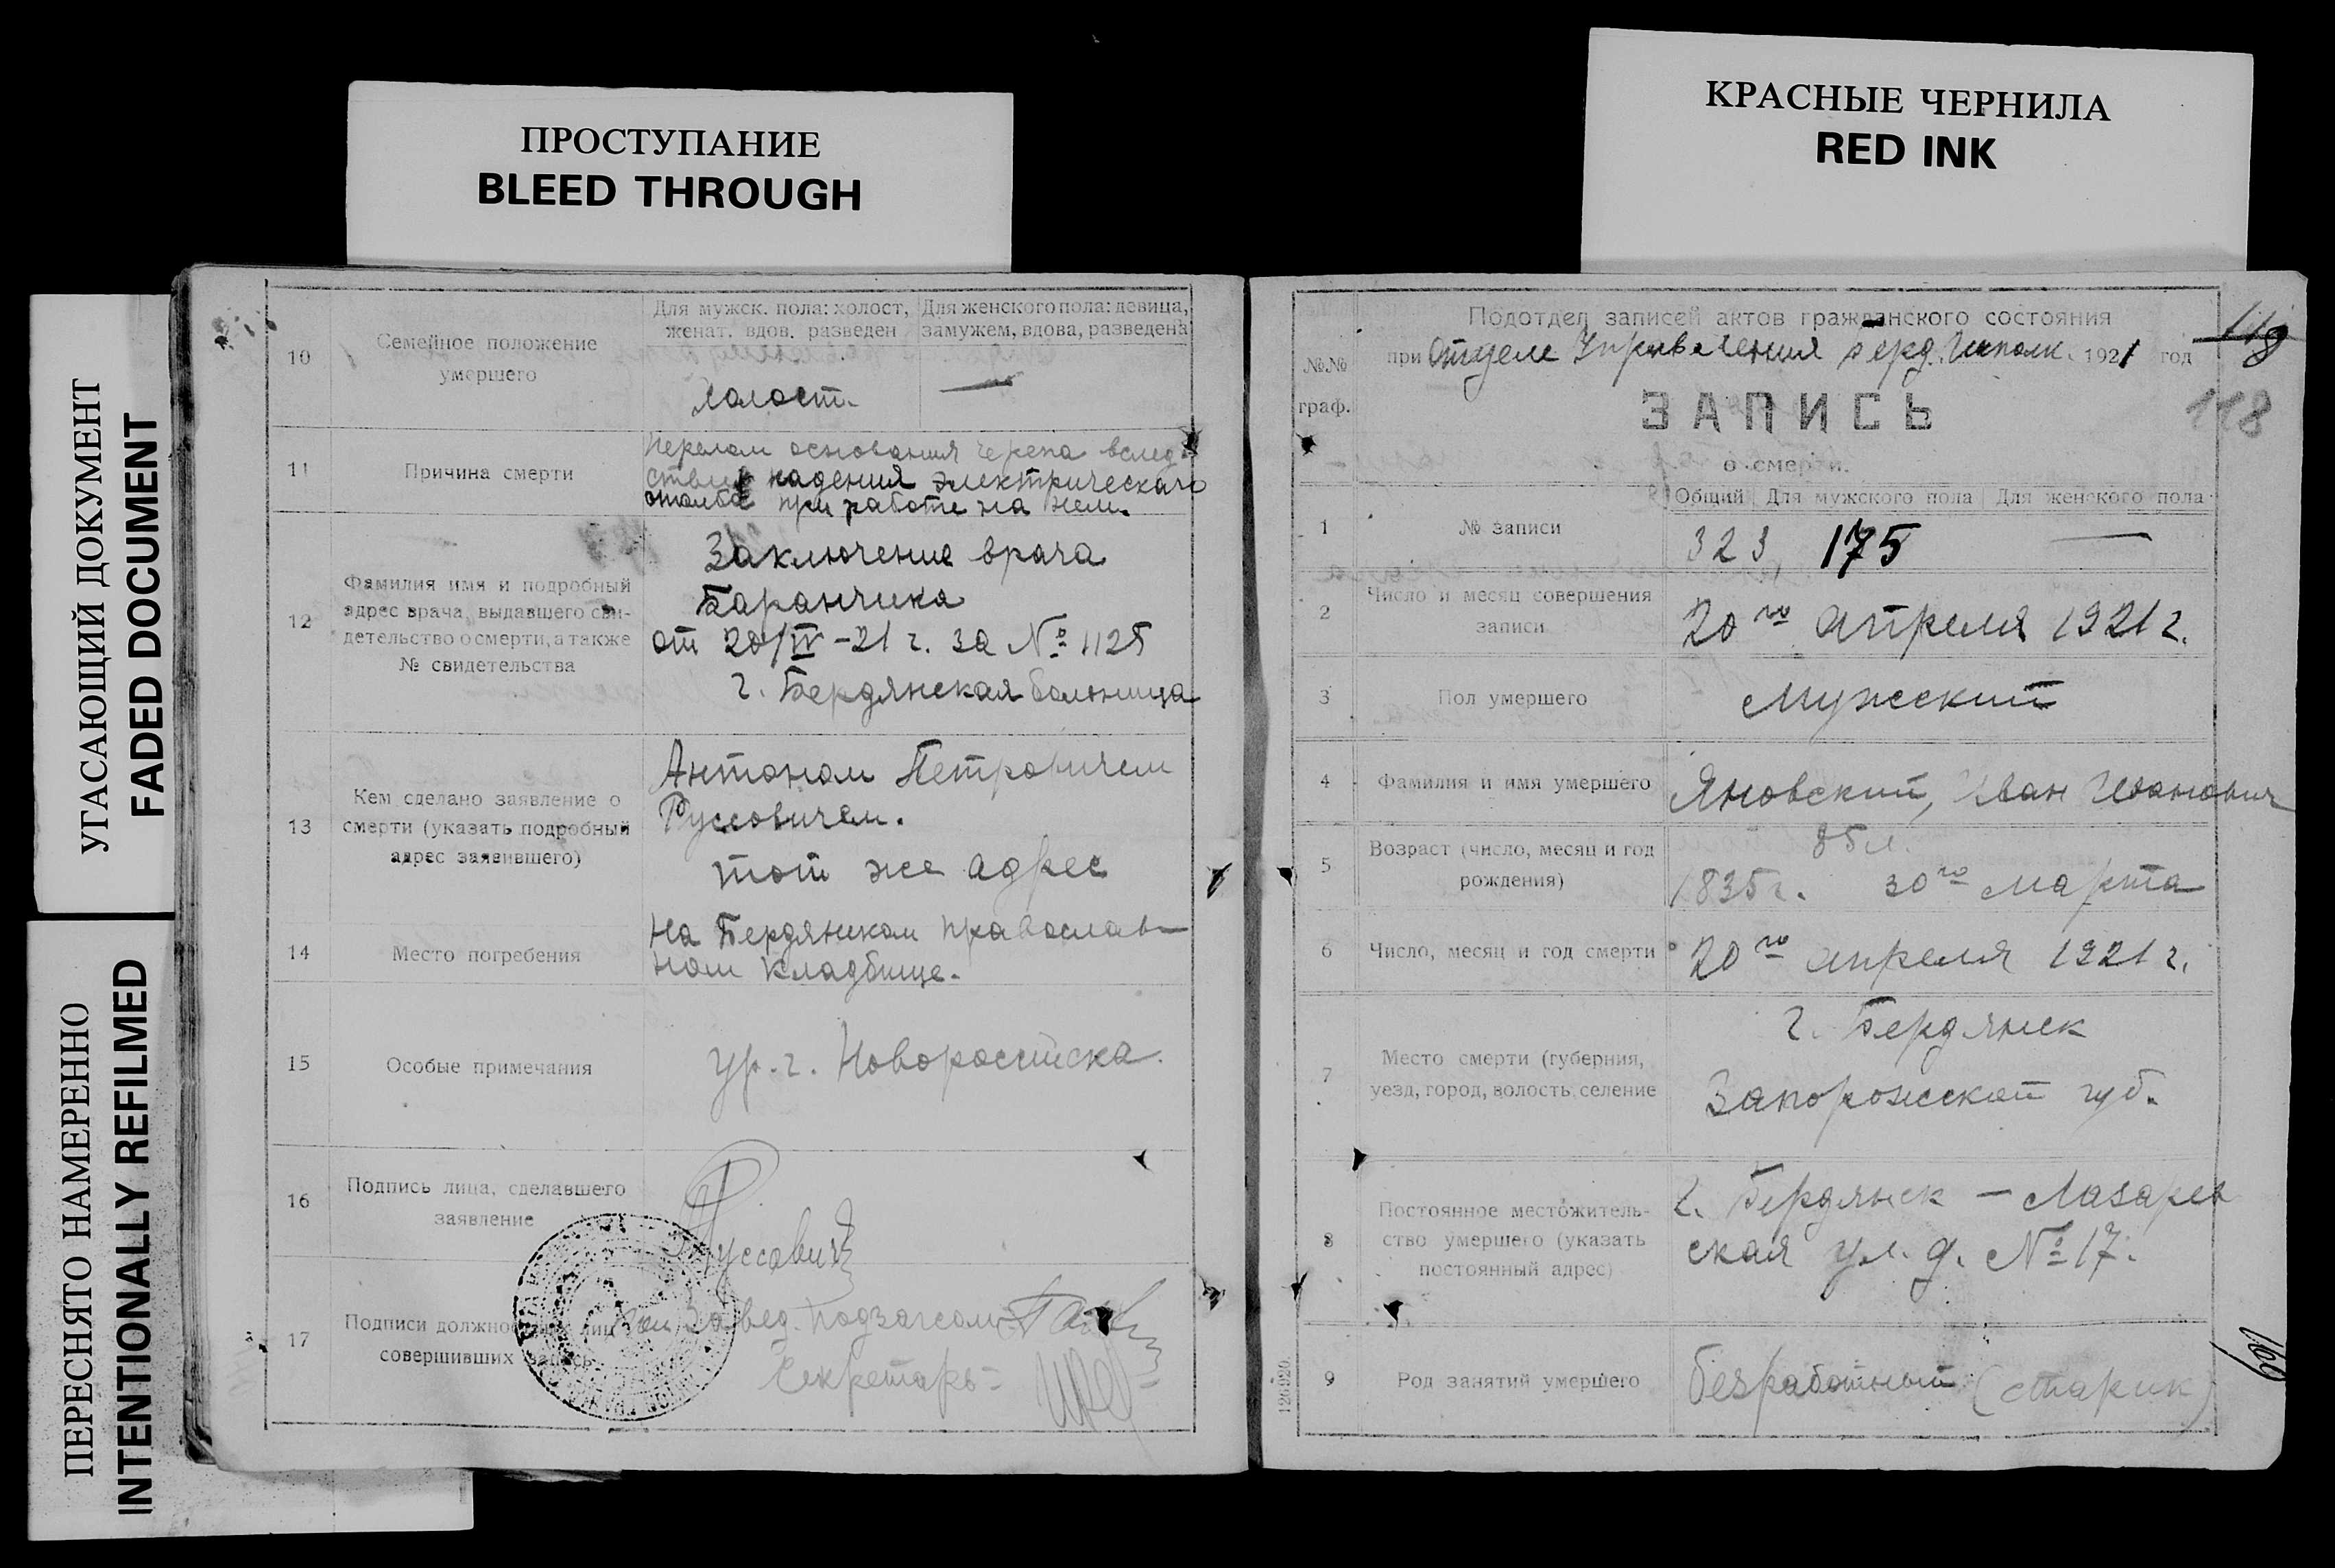 ПРОСТУПАНИЕ
BLEED THROUGH
КРАСНЫЕ ЧЕРНИЛА
RED INK
УГАСАЮЩИЙ ДОКУМЕНТ
FADED DOCUMENT
ПЕРЕСНЯТО НАМЕРЕННО
INTENTIONALLY REFILMED
10
Семейное положение
умершего
Для мужск. пола: холост,
женат. вдов. разведен
Для женского пола: девица,
замужем, вдова, разведена
Холост.
—
11
Причина смерти
Перелом основания черепа вслед-
ствие падения электрического
столба при работе на нем.
12
Фамилия имя и подробный
адрес врача, выдавшего сви-
детельство о смерти, а также
№ свидетельства
Заключение врача
Баранчика
от 20/IV-21 г. за № 1125
г. Бердянская больница
13
Кем сделано заявление о
смерти (указать подробный
адрес заявившего)
Антоном Петровичем
Руссовичем.
тот же адрес
14
Место погребения
На Бердянском православ-
ном кладбище.
15
Особые примечания
ур. г. Новороссийска.
16
Подпись лица, сделавшего
заявление
Руссович
17
Подписи должностных лиц
совершивших запись
Завед. подзагсом
Секретарь-
№№
граф.
Подотдел записей актов гражданского состояния
при Отделе Управления Берд. Исполк. 1921 год
118
118
ЗАПИСЬ
о смерти.
1
№ записи
Общий
Для мужского пола
Для женского пола
323
175
—
2
Число и месяц совершения
записи
20го апреля 1921 г.
3
Пол умершего
Мужеский
4
Фамилия и имя умершего
Яновский, Иван Иванович
5
Возраст (число, месяц и год
рождения)
85 л.
1835 г. 30го марта
6
Число, месяц и год смерти
20го апреля 1921 г.
7
Место смерти (губерния,
уезд, город, волость, селение
г. Бердянск
Запорожской губ.
8
Постоянное местожитель-
ство умершего (указать
постоянный адрес)
г. Бердянск — Лазарев
ская ул. д. № 17.
9
Род занятий умершего
безработный (старик)
126920
169